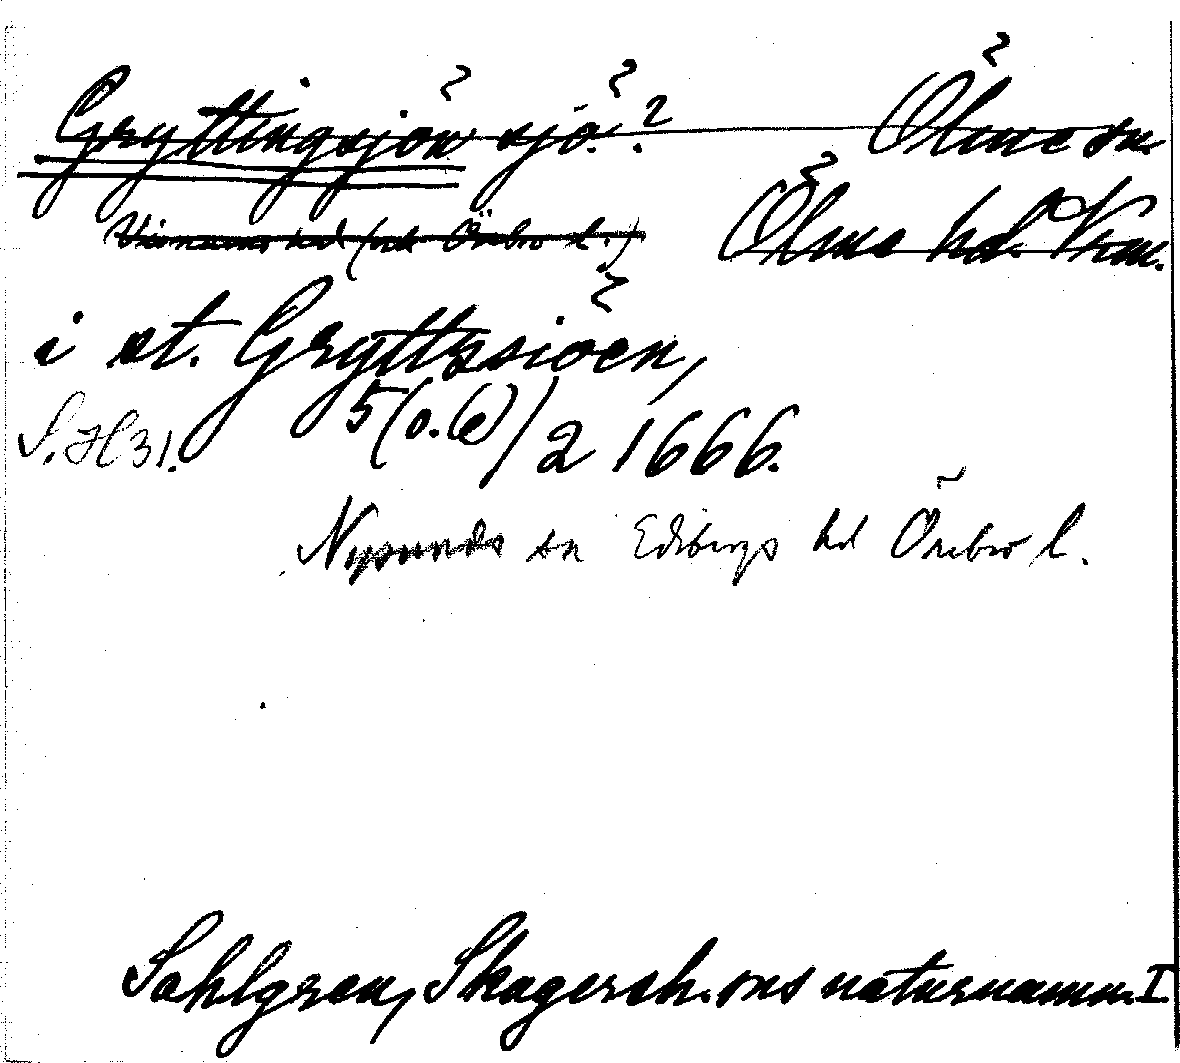 Gryttingsjön sjö.? Ölme sn.
Visnums hd (och Örebro l.) Ölme hd. Vrm.
i st. Gryttssiöen,
S. 31. 5(o.6)/2 1666.
Nysunds sn Edsbergs hd Örebro l.
Sahlgren, Skagersh.ons naturnamn. I.